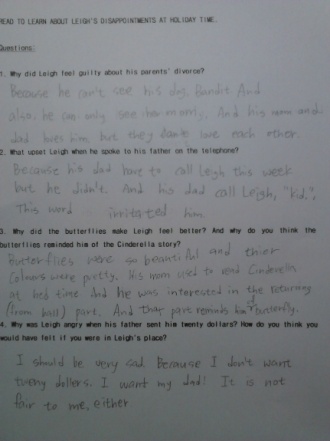 READ TO LEARN ABOUT LEIGH'S DISAPPOINTMENTS AT HOLIDAY TIME.
Questions:
1. Why did Leigh feel guilty about his parents' divorce?
Because he can't see his dog, Bandit And
also, he can only see her mom. And his mom and
dad loves him but they don't love each other.
2. What upset Leigh when he spoke to his father on the telephone?
Because his dad have to call Leigh this week
but he didn't. And his dad call Leigh, "kid,".
This word irritated him
3. Why did the butterflies make Leigh feel better? And why do you think the
butterflies reminded him of the Cinderella story?
Butterflies were so beautiful and thier
colours were pretty. His mom used to read Cinderella
at bed time And he was interested in the returning
(from ball) part. And that part reminds him of butterfly.
4. Why was Leigh angry when his father sent him twenty dollars? How do you think you
would have felt if you were in Leigh's place?
I should be very sad Because I don't want
tweny dollers. I want my dad! It is not
fair to me, either